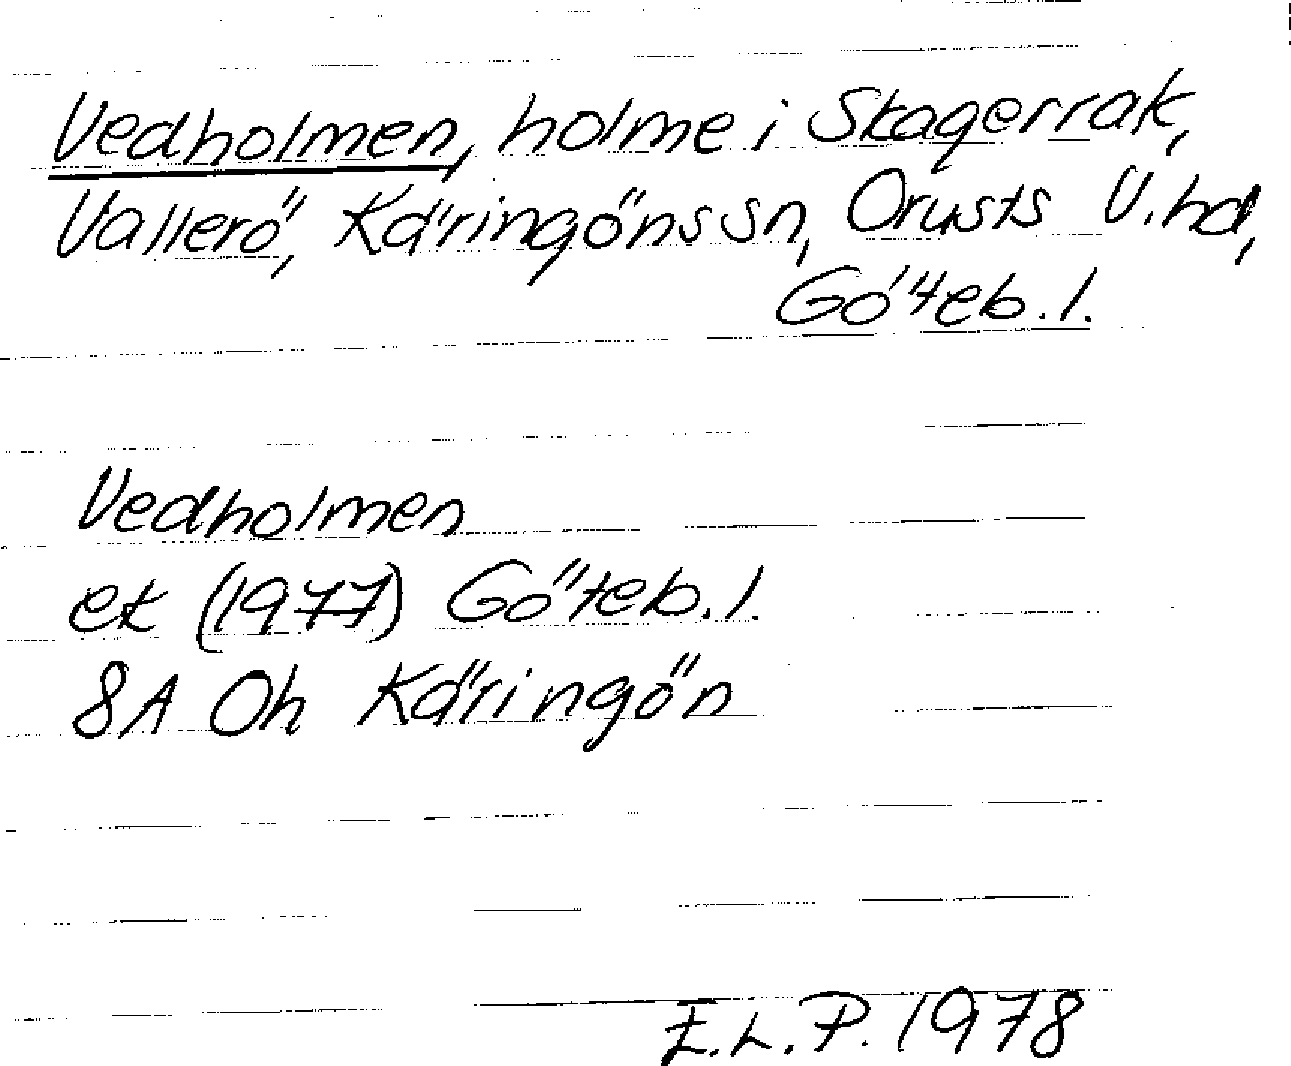 Vedholmen, holme i Skagerrak,
Vallerö, Käringöns sn, Orusts V. hd,
Göteb. l.
Vedholmen
ek (1977) Göteb. l.
8A Oh Käringön
E.L.P. 1978